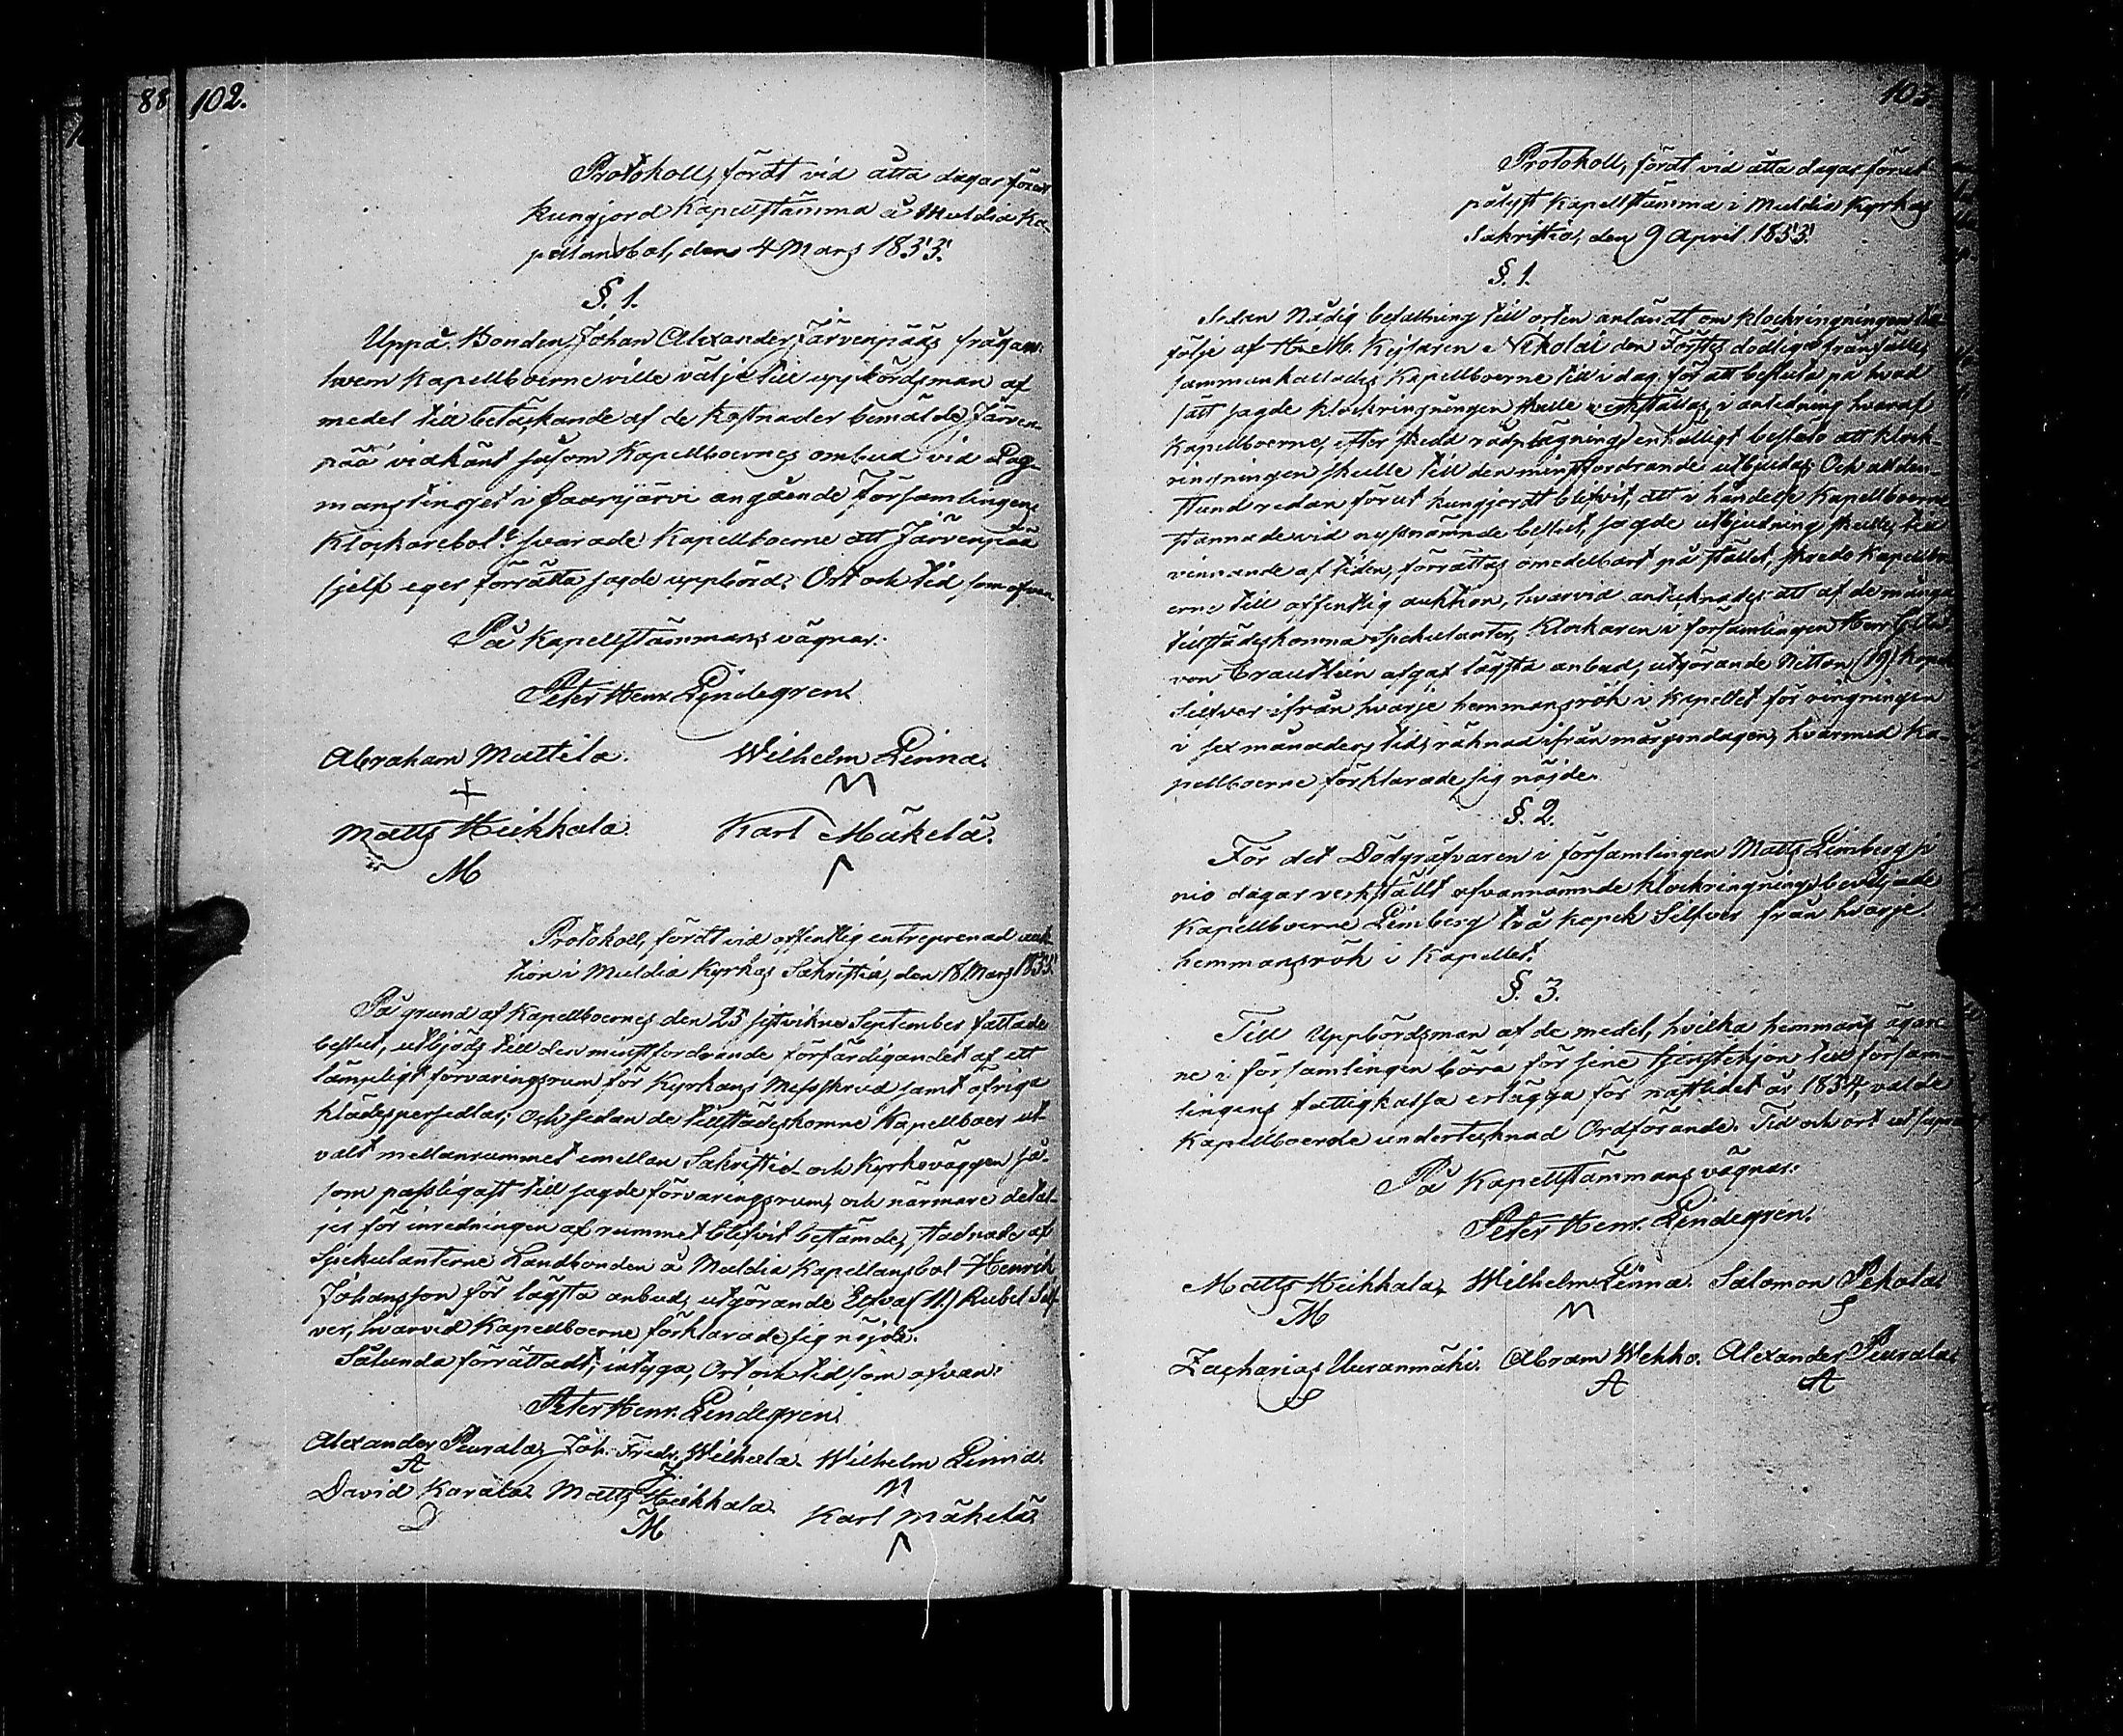 88 102.
Protokoll, fördt vid åtta dagar förut
kungjord Kapellstämma å Multia Ka-
pellansbol, den 4 Mars 1855.
§. 1.
Uppå Bonden Johan Alexander Järvenpääs frågan:
hvem Kapellboerne ville välja till uppbördsman af
medel till betäckande af de kostnader bemälde Järven-
pää vidkänt såsom Kapellboernes ombud vid Lag-
manstinget i Saarijärvi angående Församlingens
Klockarebol, svarade Kapellboerne att Järvenpää
sjelf eger förrätta sagde uppbörd. Ort och tid som ofvan
På Kapellstämmans vägnar:
Peter Henr. Lindegren.
Abraham Mattila. Wilhelm Linna.
Matts Heikkala. Karl Mäkelä.
M
Protokoll, fördt vid offentlig entreprenad auk-
tion i Multia Kyrkas Sakristia, den 18 Mars 1855.
På grund af Kapellboernes den 25 sistvikne September fattade
beslut, utbjöds till den minstfordrande förfärdigandet af ett
lämpeligt förvaringsrum för Kyrkans Messskrud samt öfriga
klädespersedlar; Och sedan de tillstädeskomne Kapellboer ut-
valt mellanrummet emellan Sakristid och Kyrkoväggen så-
som passligast till sagde förvaringsrum, och närmare detal-
jer för inredningen af rummet blifvit bestämde, stadnade af
Spekulanterne Landbonden å Multia Kapellansbol Henrik
Johansson för lägsta anbud, utgörande Elfva (11.) Rubel Silf-
ver, hvarvid Kapellboerne förklarade sig nöjde.
Sålunda förrättadt; intyga, Ort och tid som ofvan:
Peter Henr. Lindegren.
Alexander Peurala, Joh. Fredr. Wilhela. Wilhelm Linna.
A
David Karala. Matts Heikkala. Karl Mäkelä
D M
103
Protokoll, fördt vid åtta dagar förut
pålyst Kapellstämma i Multia Kyrkas
Sakristia, den 9 April. 1855.
§. 1.
Sedan Nådig befallning till orten anländt om klockringningen till
följe af H. M. Kejsaren Nikolai den Förstes dödliga frånfälle,
sammankallades Kapellboerne till i dag för att besluta på hvad
sätt sagde klockringningen skulle verkställas, i anledning hvaraf
Kapellboerne, efter skedd rådplägning, enhälligt besluto att klock-
ringningen skulle till den minstfordrande utbjudas. Och all den-
stund redan förut kungjordt blifvit, att i händelse Kapellboerne
stannade vid nyssnämnde beslut, sagde utbjudning skulle, till
vinnande af tiden, förrättas omedelbart på stället, skredo Kapellbo-
erne till offentlig auktion, hvarvid antecknades att af de många
tillstädeskomna Spekulanter, Klockaren i församlingen Herr
von Essen afgaf lägsta anbud, utgörande Nitton (19) Kopek
Silfver ifrån hvarje hemmansrök i Kapellet för ringningen
i sex månaders tid, räknad ifrån morgondagen, hvarmed Ka-
pellboerne förklarade sig nöjde.
§. 2.
För det Dödgräfvaren i församlingen Matts Limberg i
nio dagar verkställt ofvannämnde klockringning, beviljade
Kapellboerne Limberg två kopek Silfver från hvarje
hemmansrök i Kapellet.
§. 3.
Till Uppbördsman af de medel, hvilka hemmans ägar-
ne i församlingen böra för sine tjenstehjon till försam-
lingens fattigkassa erlägga för nästledet år 1854, valde
Kapellboerne undertecknad Ordförande. Tid och ort ut supra
På Kapellstämmans vägnar:
Peter Henr. Lindegren.
Matts Heikkala, Wilhelm Linna. Salomon Pekola.
M S
Zacharias Uuranmäki. Abram Wehko. Alexander Peurala
S A A